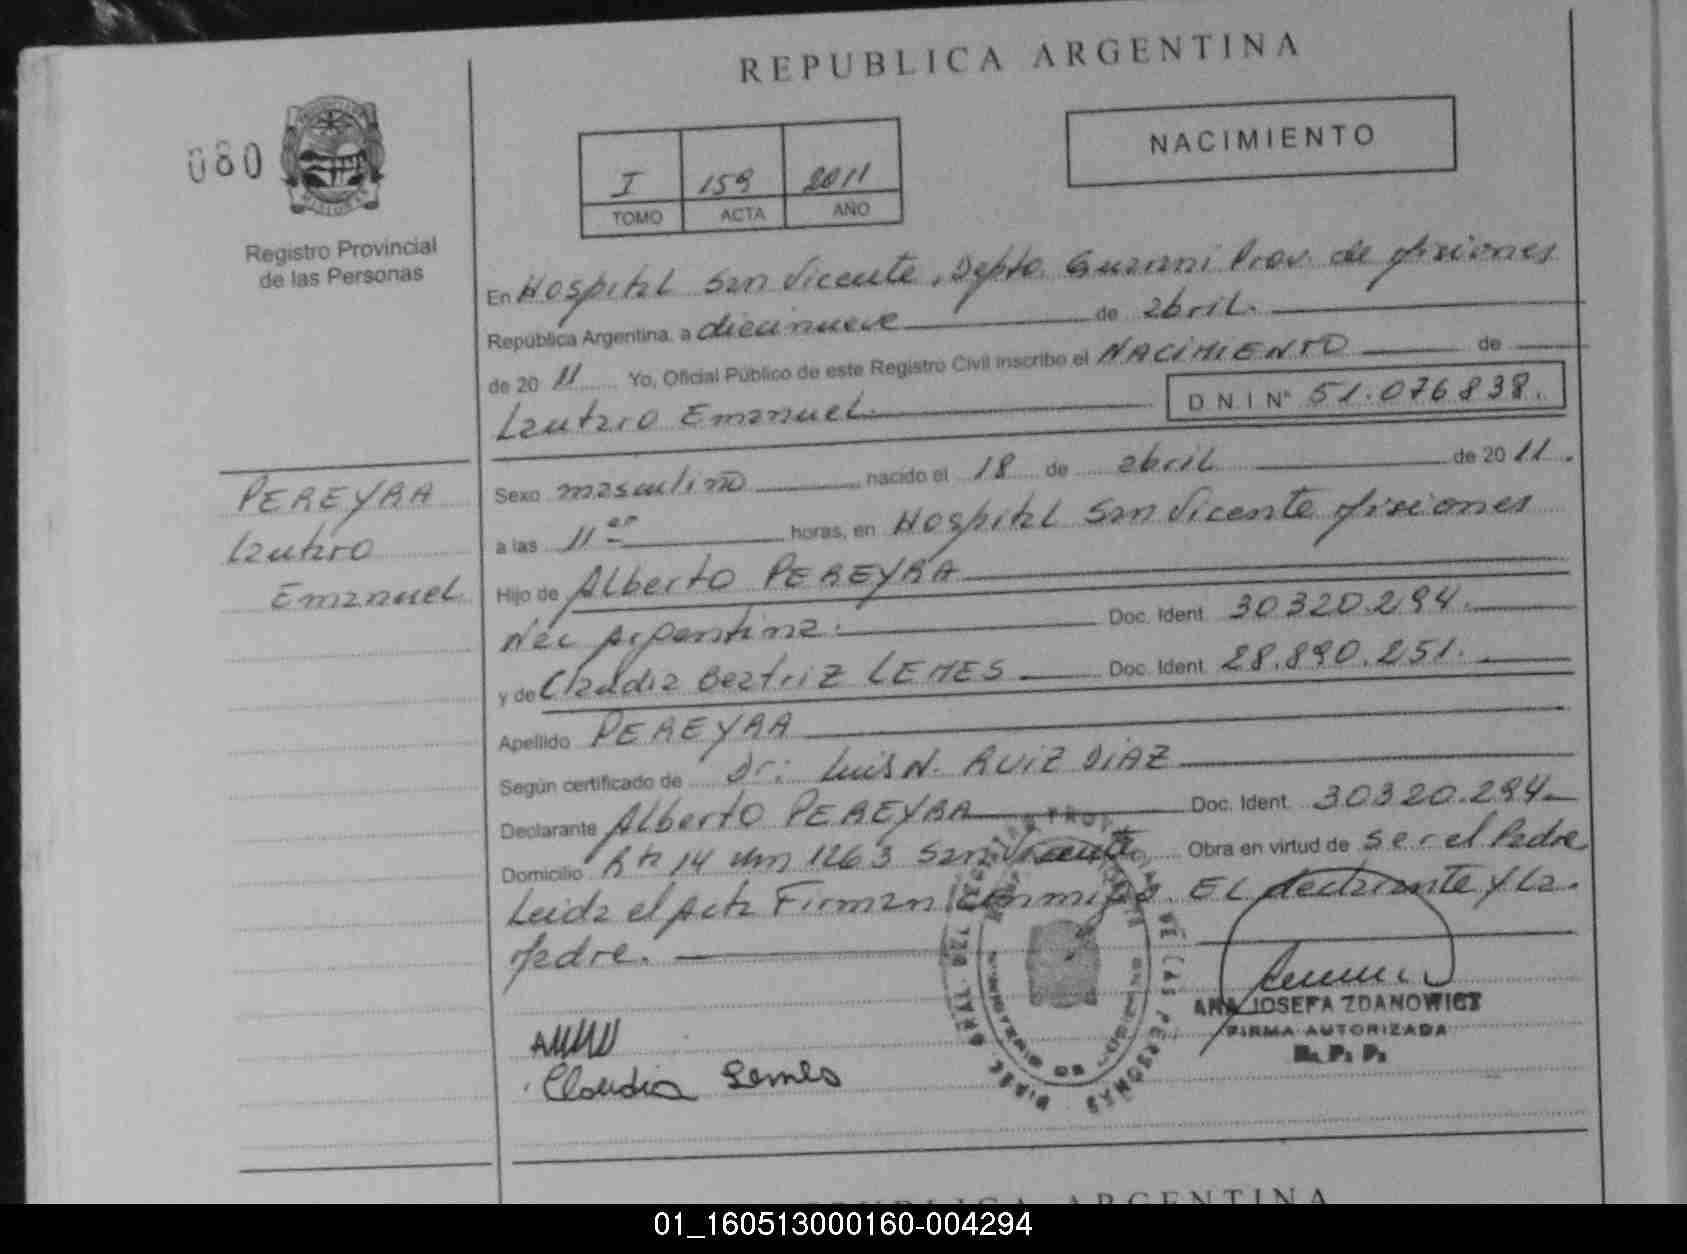 REPUBLICA ARGENTINA
080
NACIMIENTO
I 159 2011
TOMO ACTA AÑO
Registro Provincial
de las Personas
En Hospital San Vicente, Depto. Guarani Prov. de Misiones
República Argentina, a diecinueve de abril.
de 2011 Yo, Oficial Público de este Registro Civil inscribo el NACIMIENTO de
Lautaro Emanuel D.N.I Nº 51.076838.
PEREYRA
Lautaro
Emanuel
Sexo masculino nacido el 18 de abril de 2011.
a las 11 horas, en Hospital San Vicente Misiones
Hijo de Alberto PEREYRA
Nac Argentina. Doc. Ident. 30320.294.
y de Claudia Beatriz LEMES Doc. Ident. 28.890.251.
Apellido PEREYRA
Según certificado de Dr: Luis N. RUIZ DIAZ
Declarante Alberto PEREYRA Doc. Ident. 30320.294
Domicilio Rta 14 Km 1263 San Vicente Obra en virtud de ser el Padre
Leida el Acta Firman conmigo. EL declarante y la
Madre.
ANA JOSEFA ZDANOWICZ
FIRMA AUTORIZADA
R. P. P.
Claudia Lemes
REPUBLICA ARGENTINA
01_160513000160-004294